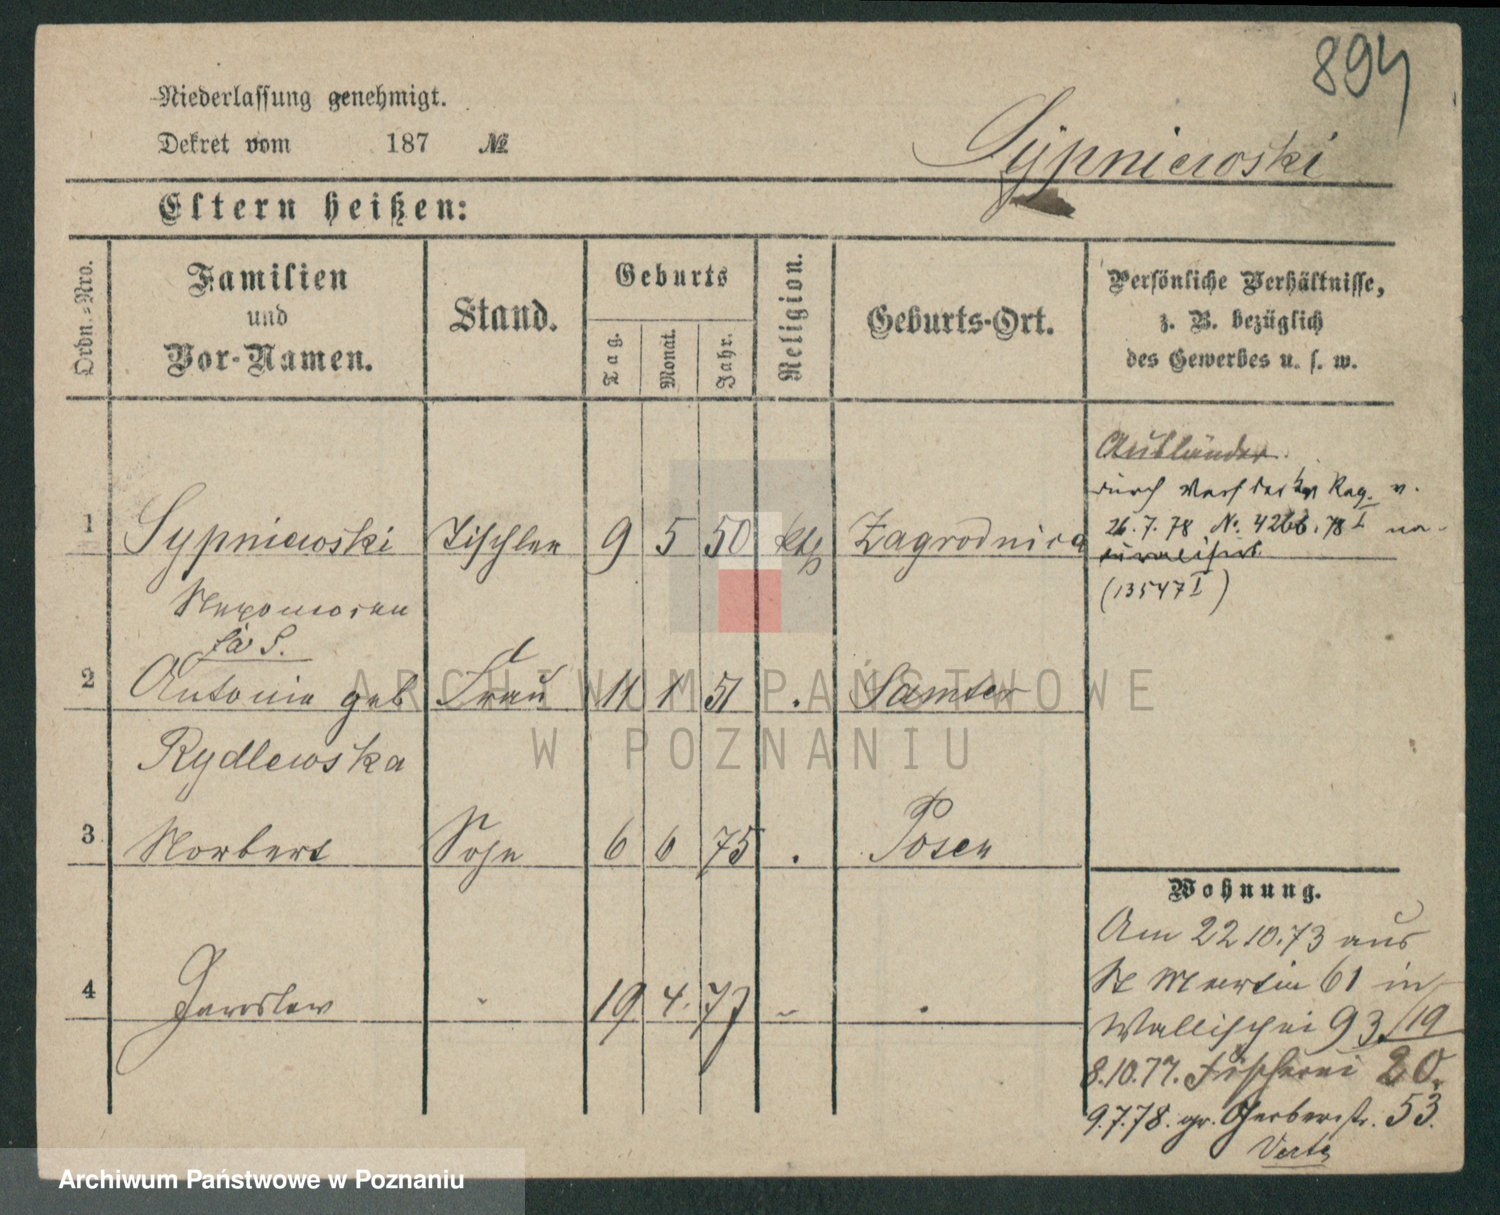 894
Niederlassung genehmigt.
Dekret vom 187 №
Sypniewski
Eltern heißen:
Ordn.-Nro.
Familien
und
Vor-Namen.
Stand.
Geburts
Tag.
Monat.
Jahr.
Religion.
Geburts-Ort.
Persönliche Verhältnisse,
z. B. bezüglich
des Gewerbes u. s. w.
Ausländer.
durch Reg. v.
26.7.78 No. 4266.78 I na-
turalisirt
(13547 I)
1 Sypniewski Tischler 9 5 50 kth Zagrodnica
Nepomocen
2 Antonie geb Frau 11 1 51 . Samter
Rydlewska
3 Norbert Sohn 6 6 75 . Posen
4 Jaroslaw 19 4. 77
Wohnung.
Am 22 10.73 aus
St Martin 61 in
Wallischei 93./19
8.10.77. Fischerei 20.
9.7.78. gr. Gerberstr. 53.
Verte
ARCHIWUM PAŃSTWOWE
W POZNANIU
Archiwum Państwowe w Poznaniu